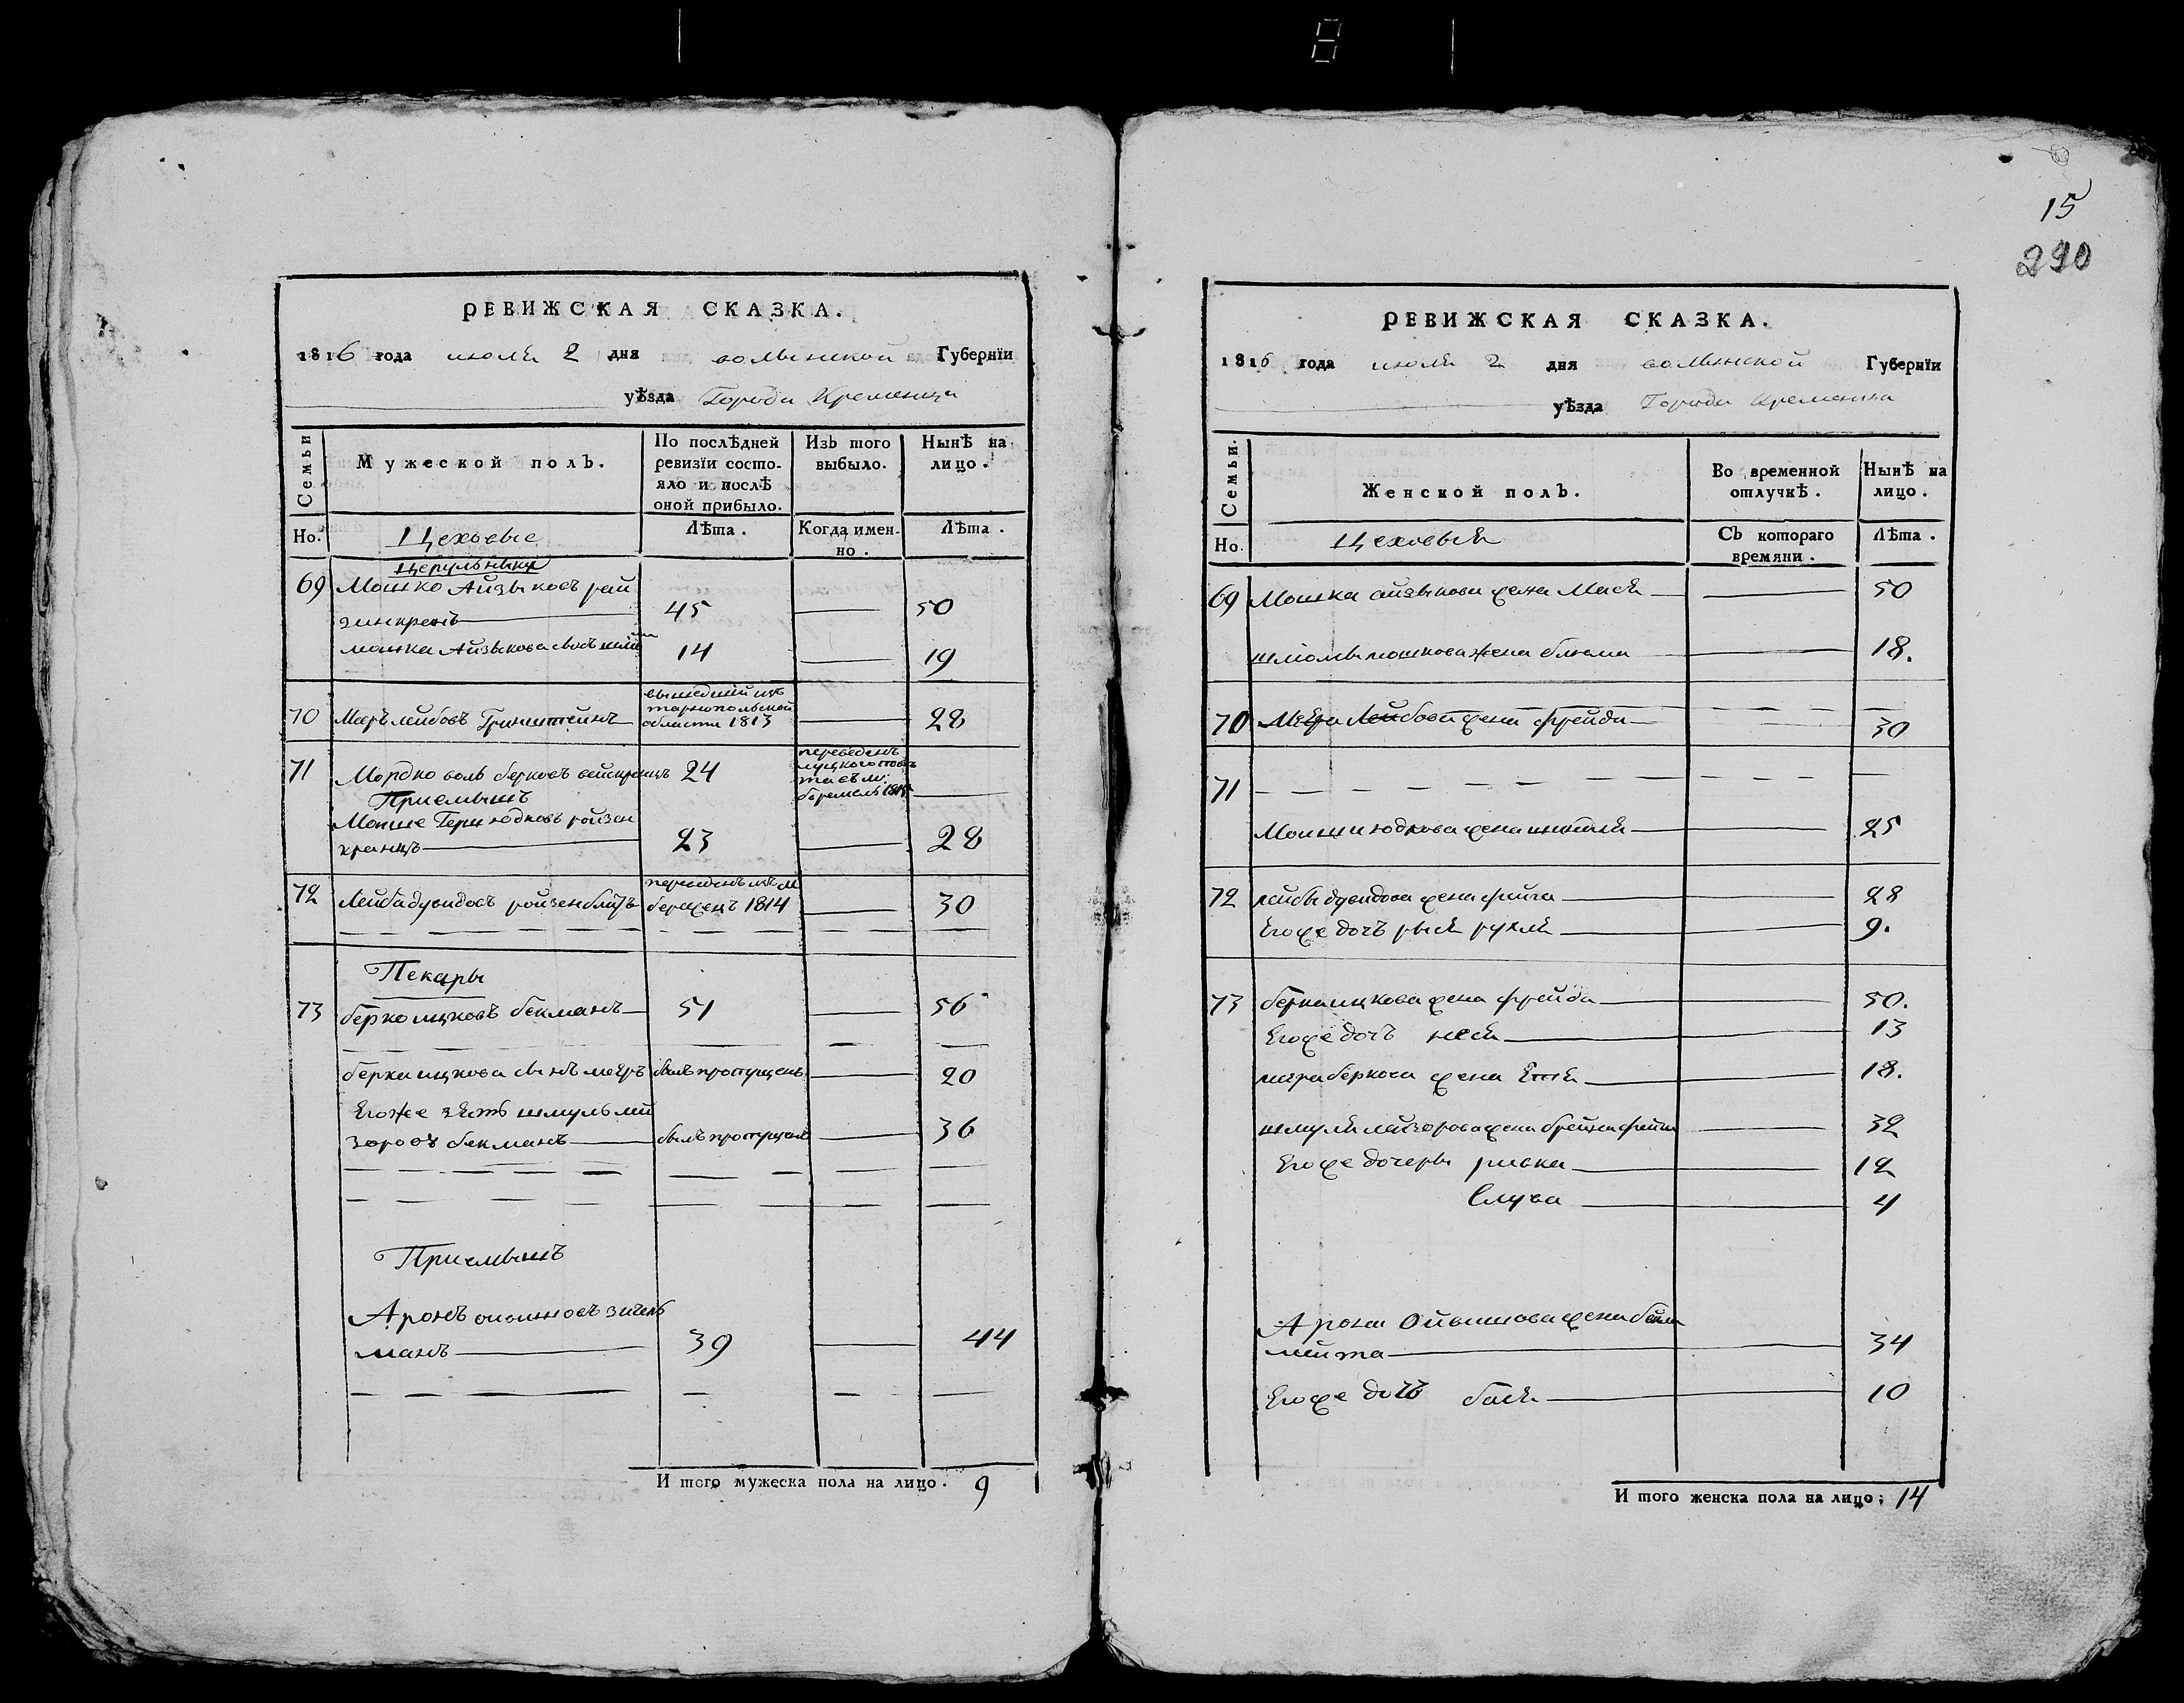 РЕВИЖСКАЯ СКАЗКА.
1816 года июля 2 дня волынской Губернїи
уѣзда Города Кременца
Семьи
Мужеской полъ.
По послѣдней
ревизїи состо-
яло и послѣ
оной прибыло.
Изъ того
выбыло.
Нынѣ на
лицо.
Но.
Цеховые
Лѣта.
Когда имен-
но.
Лѣта.
Церульники
69 Мошко Айзыковъ рай
45 50
мошка Айзыкова сынъ
14 19
70 Меръ лейбовъ Гринштейнъ
вышедшїй изъ
тарнопольской
области 1813
28
71 Мордко воль берковъ вейскранцъ 24
переведенъ
луцкого
1815
Приемышъ
Моше Герш юдковъ ройзен
кранцъ 23 28
72 Лейба дувидовъ ройзенблитъ
1814 30
Пекары
73 берко ицковъ бекманъ 51 56
берки ицкова сынъ меиръ былъ пропущенъ 20
Егоже зять шмуль лей
зоровъ бекманъ былъ пропущенъ 36
Приемышъ
Аронъ
манъ 39 44
И того мужеска пола на лицо. 9
15
290
РЕВИЖСКАЯ СКАЗКА.
1816 года июля 2 дня волынской Губернїи
уѣзда Города Кременца
Семьи.
Женской полъ.
Во временной
отлучкѣ.
Нынѣ на
лицо.
Но.
Цеховыя
Съ котораго
времяни.
Лѣта.
69 Мошка айзыкова жена Мася 50
шломы мошкова жена блюма 18.
70 Меера Лейбова жена фрейда 30
71
Моши юдкова жена 25
72 лейбы дувидова жена фейга 28
Егоже дочъ рыся рухля 9.
73 берка ицкова жена фрейда 50.
Егоже дочъ неся 13
меера беркова жена Етя 18.
шмуля лейзорова жена брейна фейга 32
Егоже дочеры ривка 12
Слува 4
Арона Ойвишова жена бейла
лейта 34
Егоже дочъ бася 10
И того женска пола на лицо; 14